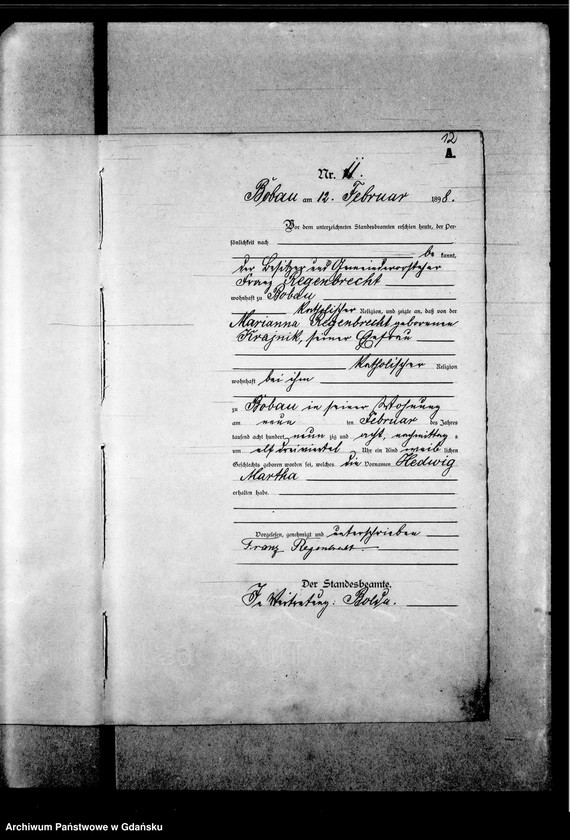 12
A.
Nr. 11.
Bobau am 12. Februar 1898.
Vor dem unterzeichneten Standesbeamten erschien heute, der Per-
sönlichkeit nach
be kannt,
der Besitzer und Gemeindevorsteher
Franz Regenbrecht
wohnhaft zu Bobau
katholischer Religion, und zeigte an, daß von der
Marianna Regenbrecht geborenen
Krajnik, seiner Ehefrau
katholischer Religion
wohnhaft bei ihm
zu Bobau in seiner Wohnung
am neun ten Februar des Jahres
tausend acht hundert neun zig und acht, nachmittag s
um elf dreiviertel Uhr ein Kind weib lichen
Geschlechts geboren worden sei, welches die Vornamen Hedwig
Martha
erhalten habe.
Vorgelesen, genehmigt und unterschrieben
Franz Regenbrecht
Der Standesbeamte.
In Vertretung: Bolda.
Archiwum Państwowe w Gdańsku